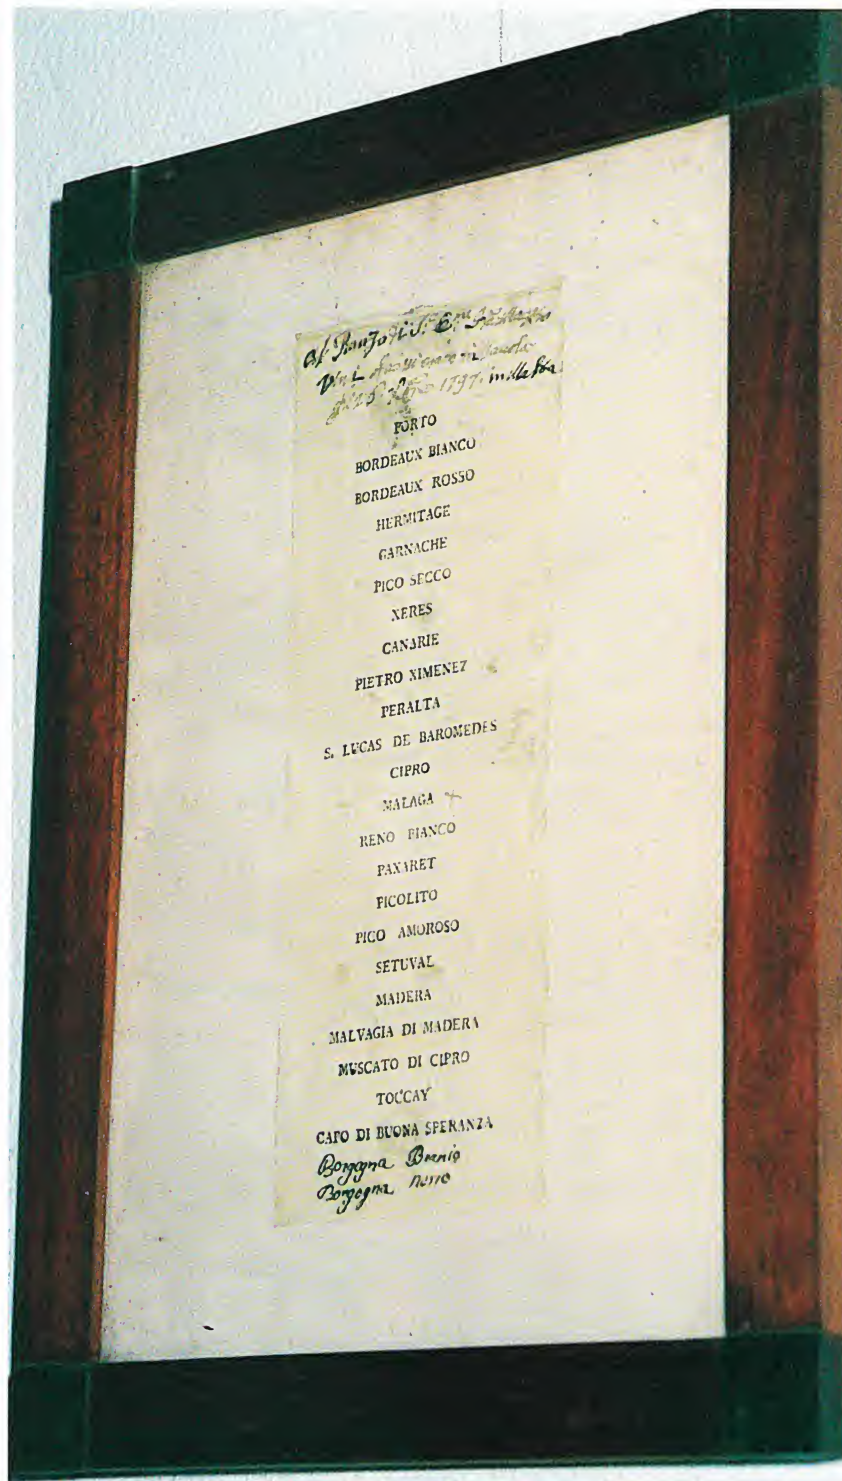 Vini in tavola
1797. nella
PORTO
BORDEAUX BIANCO
BORDEAUX ROSSO
HERMITAGE
GARNACHE
PICO SECCO
XERES
CANARIE
PIETRO XIMENEZ
PERALTA
S. LUCAS DE BAROMEDES
CIPRO
MALAGA
RENO BIANCO
PAXARET
PICOLITO
PICO AMOROSO
SETUVAL
MADERA
MALVAGIA DI MADERA
MUSCATO DI CIPRO
TOCCAY
CAPO DI BUONA SPERANZA
Borgogna
Borgogna